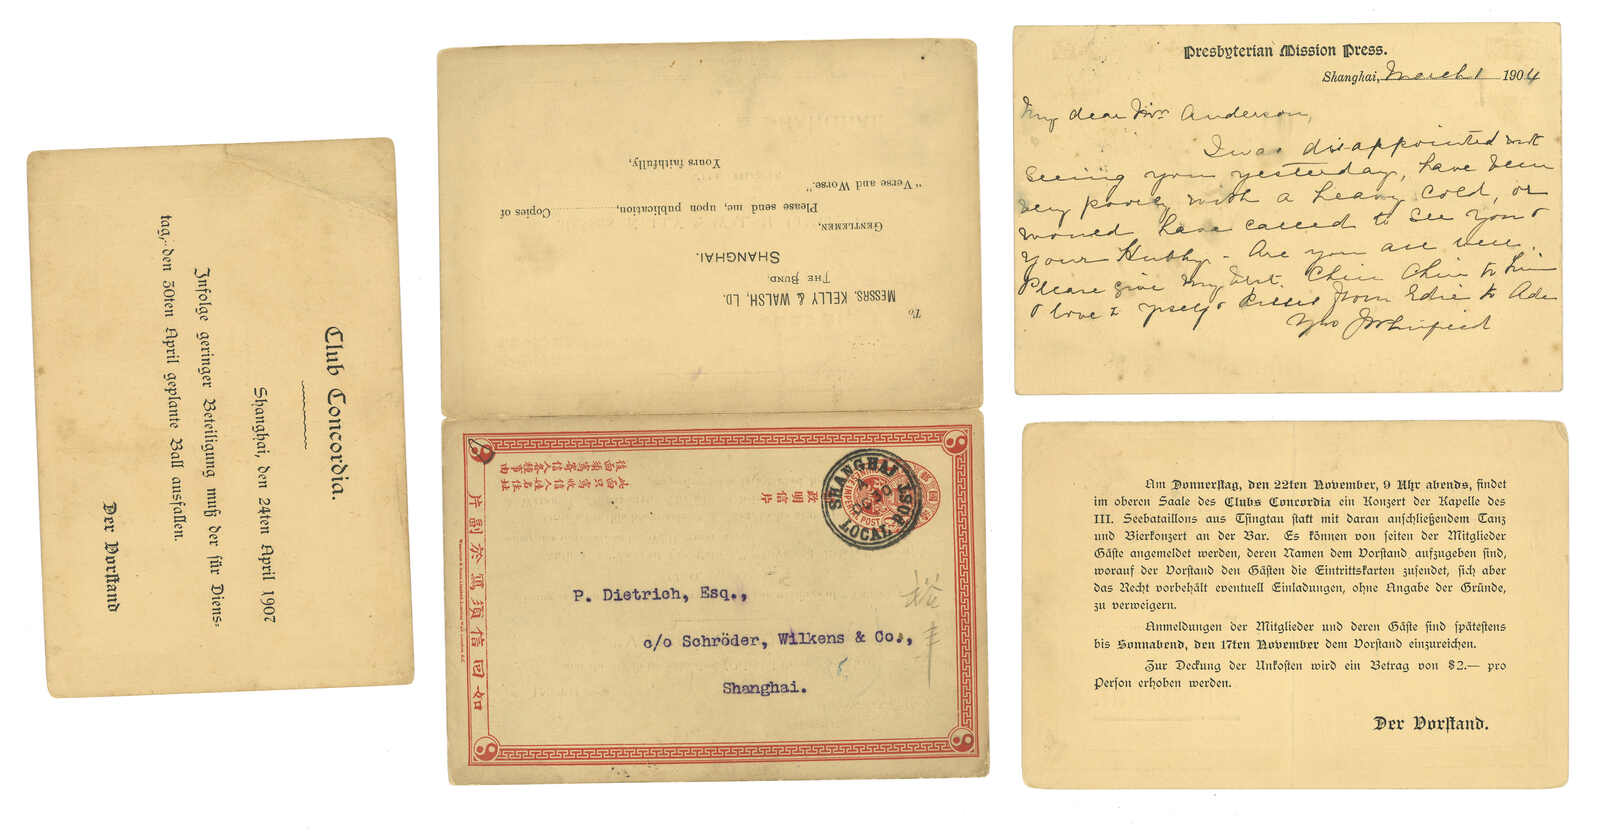 Club Concordia.
Shanghai, den 24ten April 1907
Infolge geringer Beteiligung muß der für Diens-
tag, den 30ten April geplante Ball ausfallen.
Der Vorstand
To
MESSRS. KELLY & WALSH, LD.
THE BUND,
SHANGHAI.
GENTLEMEN,
Please send me, upon publication, Copies of
"Verse and Worse."
Yours faithfully,
SHANGHAI
LOCAL POST
P. Dietrich, Esq.,
c/o Schröder, Wilkens & Co.,
Shanghai.
此面只寫收信人姓名住址
後面須寫寄信人各種事由
郵政明信片
如回信須寫於副片
Presbyterian Mission Press.
Shanghai, March 1 1904
My dear Mrs Anderson,
I was disappointed not
seeing you yesterday, have been
very poorly with a heavy cold, or
would have called to see you &
your Hubby - Are you all well.
Please give my best Chin Chin to him
& love to yrself & kisses from Edie to Ada
Am Donnerstag, den 22ten November, 9 Uhr abends, findet
im oberen Saale des Clubs Concordia ein Konzert der Kapelle des
III. Seebataillons aus Tsingtau statt mit daran anschließendem Tanz
und Bierkonzert an der Bar. Es können von seiten der Mitglieder
Gäste angemeldet werden, deren Namen dem Vorstand aufzugeben sind,
worauf der Vorstand den Gästen die Eintrittskarten zusendet, sich aber
das Recht vorbehält eventuell Einladungen, ohne Angabe der Gründe,
zu verweigern.
Anmeldungen der Mitglieder und deren Gäste sind spätestens
bis Sonnabend, den 17ten November dem Vorstand einzureichen.
Zur Deckung der Unkosten wird ein Betrag von $2.— pro
Person erhoben werden.
Der Vorstand.